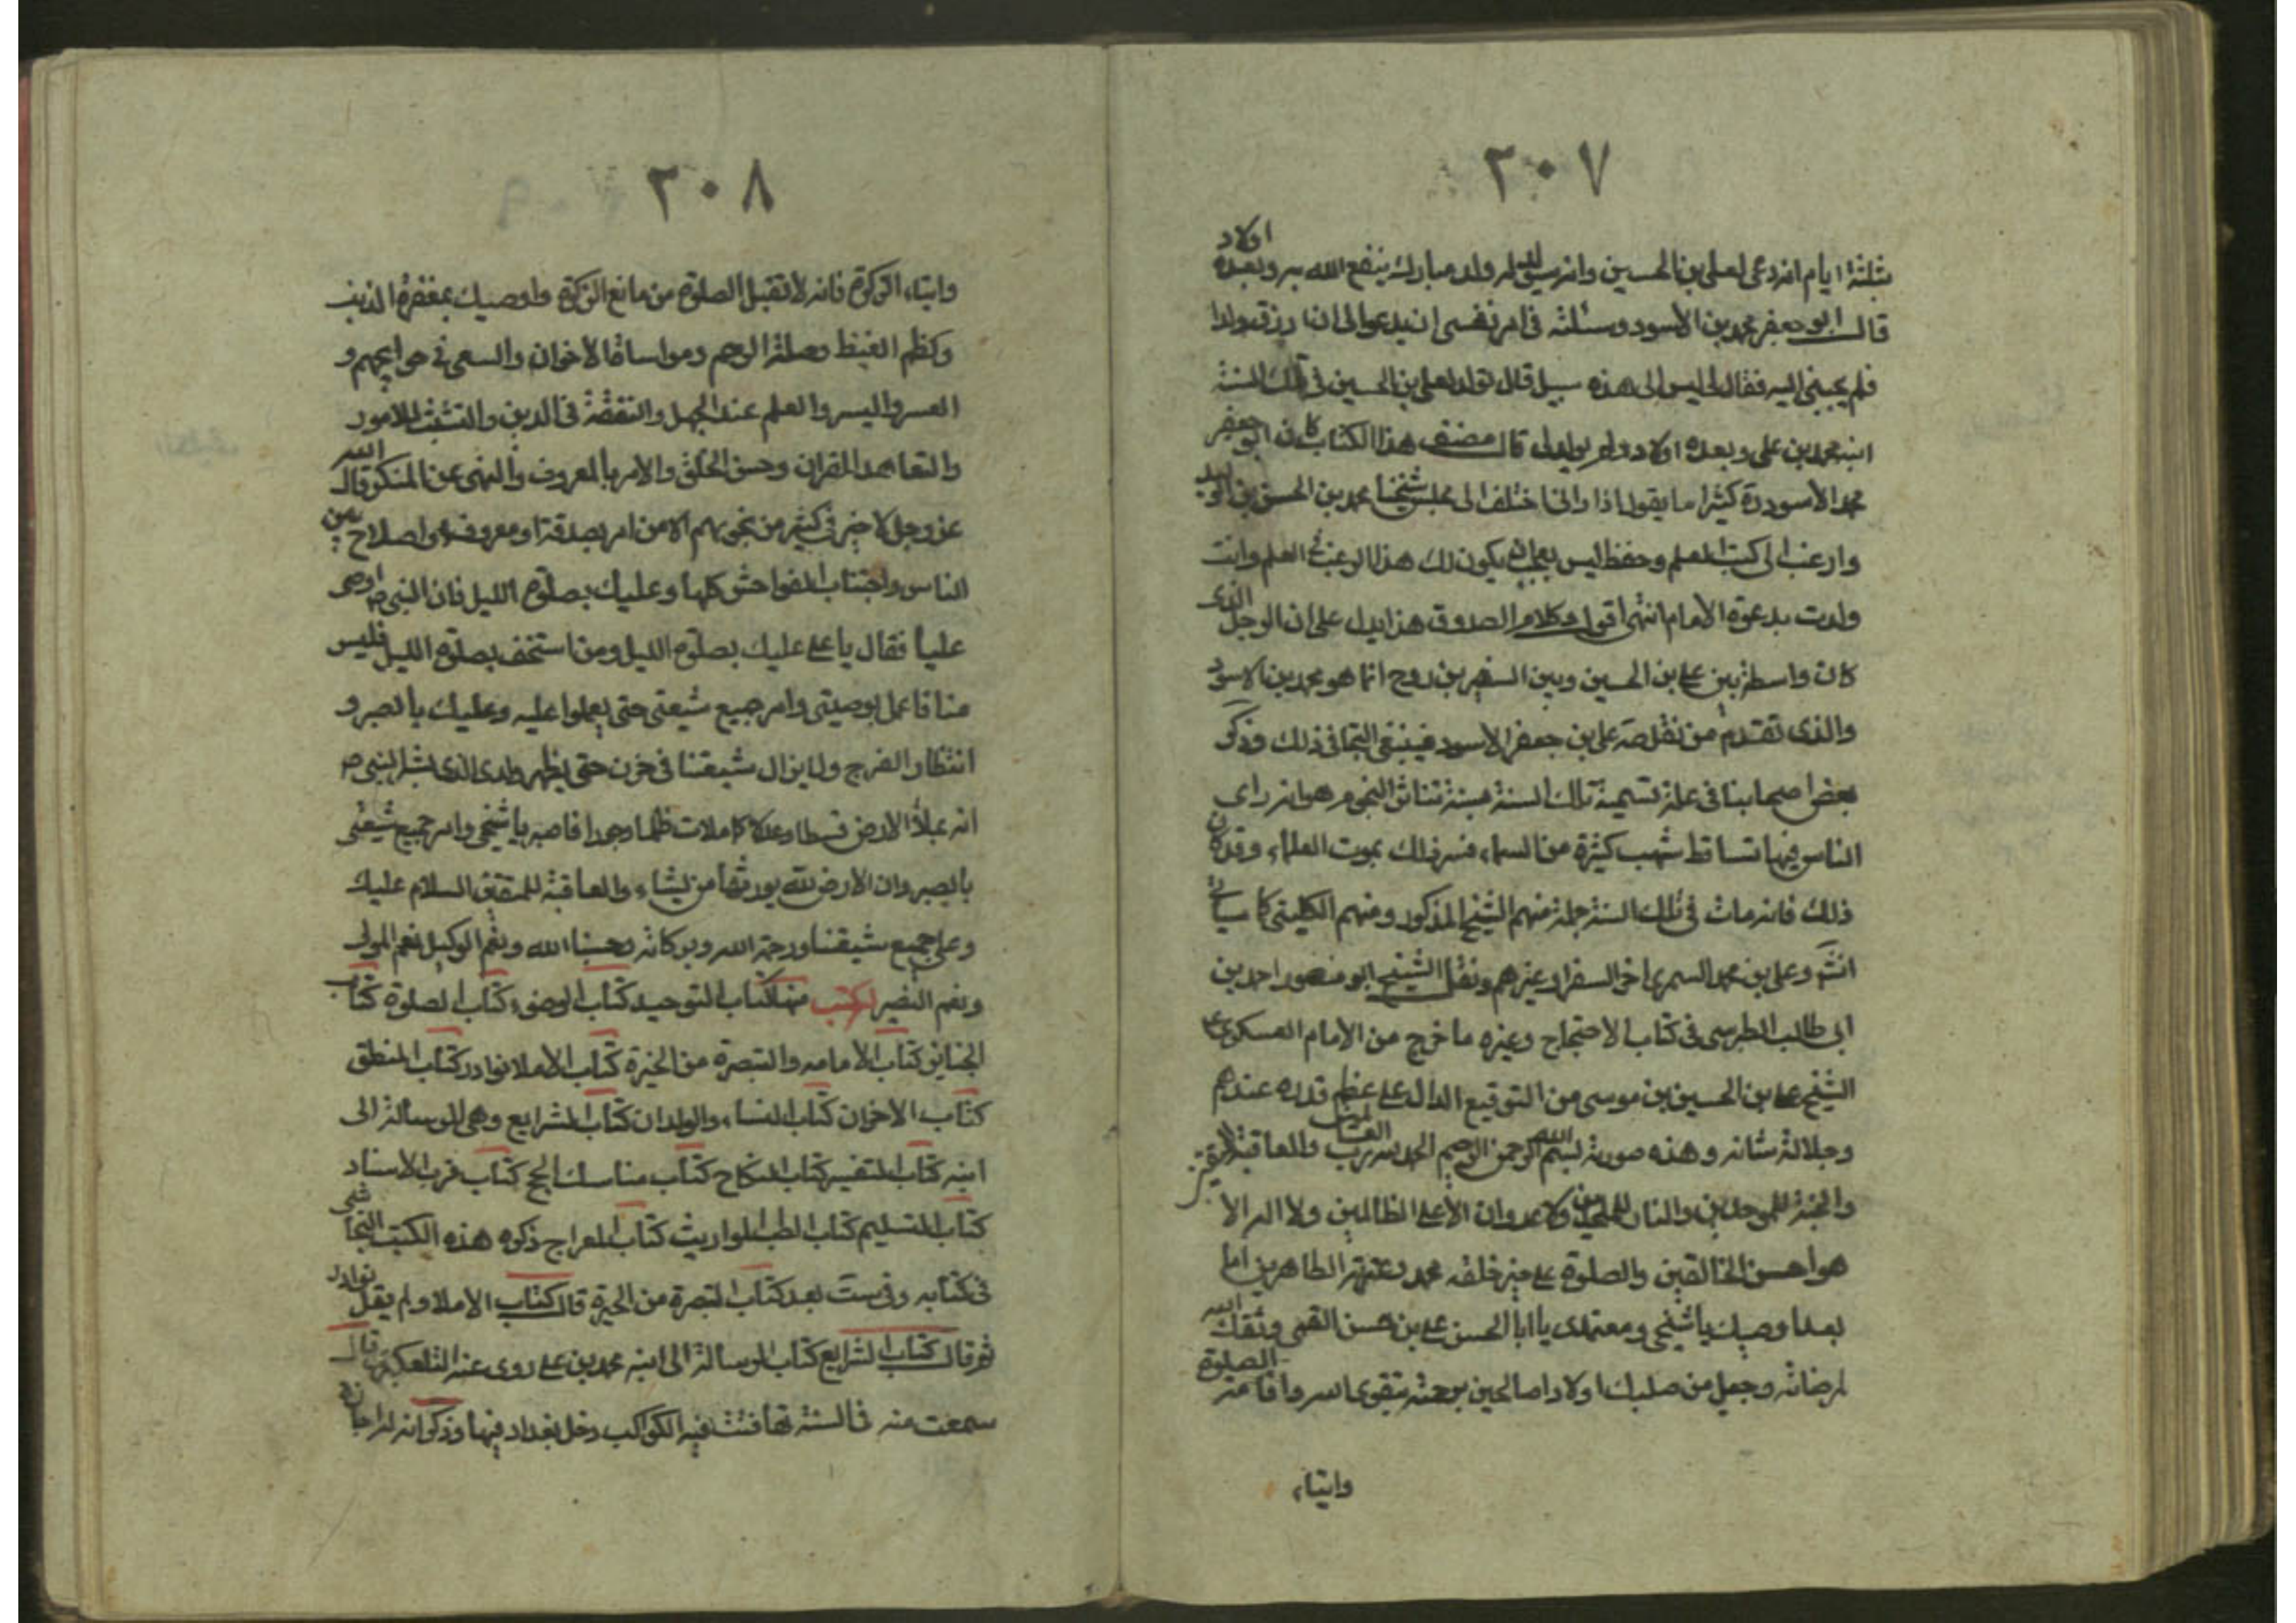 ٣٠٧
ثلثة ايام انه دعى لعلى بن الحسين وانه سيولد له ولد مبارك ينفع الله به وبعده اولاد
قال ابو جعفر محمد بن الأسود وسئلته فى امر نفسى ان يدعو الى ان ارزق ولدا
فلم يجبنى اليه فقال لى ليس الى هذه سبيل قال فولد لعلى بن الحسين فى تلك السنة
ابنه محمد بن على وبعده اولاد ولم يولد لى قال مصنف هذا الكتاب كان ابو جعفر
محمد الأسود ره كثيرا ما يقول اذا رانى اختلف الى مجلس شيخنا محمد بن الحسن بن الوليد
وارغب الى كتب العلم وحفظه ليس بعجب ان يكون لك هذه الرغبة فى العلم وانت
ولدت بدعوة الامام انتهى اقول وكلام الصدوق هذا يدل على ان الرجل الذى
كان واسطة بين على بن الحسين وبين السفير بن روح انما هو محمد بن الاسود
والذى تقدم من نقل صه على بن جعفر الاسود فينبغى التجافى ذلك وذكر
بعض اصحابنا فى علة تسمية تلك السنة بسنة تناثر النجوم هو انه راى
الناس فيها تساقط شهب كثيرة من السماء فسر ذلك بموت العلماء وقد كان
ذلك فانه مات فى تلك السنة جملة منهم الشيخ المذكور ومنهم الكلينى كما سياتى
انشم وعلى بن محمد السمرى اخر السفراء وغيرهم ونقل الشيخ ابو منصور احمد بن
ابى طالب الطبرسى فى كتاب الاحتجاج وغيره ما خرج من الامام العسكرى ع
الشيخ على بن الحسين بن موسى من التوقيع الدال على عظم قدره عندهم
وجلالة شانه وهذه صورته بسم الله الرحمن الرحيم الحمد لله رب العالمين والعاقبة للمتقين
والجنة للموحدين والنار للملحدين ولا عدوان الا على الظالمين ولا اله الا
هو احسن الخالقين والصلوة على خير خلقه محمد وعترته الطاهرين اما
بعد اوصيك يا شيخى ومعتمدى يا ابا الحسن على بن حسن القمى وفقك الله
لمرضاته وجعل من صلبك اولادا صالحين برحمته بتقوى الله واقامة الصلوة
وايتاء
٣٠٨
وايتاء الزكوة فانه لا تقبل الصلوة من مانع الزكوة واوصيك بمغفرة الذنب
وكظم الغيظ وصلة الرحم ومواساة الاخوان والسعى فى حوايجهم و
العسر واليسر والعلم عند الجهل والتفقه فى الدين والتثبت للامور
والتعاهد القران وحسن الخلق والامر بالمعروف والنهى عن المنكر قال الله
عز وجل لا خير فى كثير من نجويهم الا من امر بصدقة او معروف او اصلاح بين
الناس واجتناب الفواحش كلها وعليك بصلوة الليل فان النبى ص اوصى
عليا فقال يا على عليك بصلوة الليل ومن استخف بصلوة الليل فليس
منا فاعمل بوصيتى وامر جميع شيعتى حتى يعملوا عليه وعليك بالصبر و
انتظار الفرج ولا يزال شيعتنا فى حزن حتى يظهر ولدى الذى بشر النبى ص
انه يملأ الارض قسطا وعدلا كما ملات ظلما وجورا فاصبر يا شيخى وامر جميع شيعتى
بالصبر وان الارض لله يورثها من يشاء والعاقبة للمتقين السلام عليك
وعلى جميع شيعتنا ورحمة الله وبركاته وحسبنا الله ونعم الوكيل نعم المولى
ونعم النصير له كتب منها كتاب التوحيد كتاب الوضوء كتاب الصلوة كتاب
الجنايز كتاب الامامه والتبصرة من الحيرة كتاب الاملا نوادر كتاب المنطق
كتاب الاخوان كتاب النساء والولدان كتاب الشرايع وهى الرسالة الى
ابنه كتاب التفسير كتاب النكاح كتاب مناسك الحج كتاب قرب الاسناد
كتاب التسليم كتاب الطب المواريث كتاب المعراج ذكره هذه الكتب النجاشى
فى كتابه وفى ست بعد كتاب التبصرة من الحيرة قال كتاب الاملا ولم يقل نوادر
ثم قال كتاب الشرايع كتاب الرسالة الى ابنه محمد بن على روى عنه التلعكبرى قال
سمعت منه فى السنة تهافتت فيه الكواكب دخل بغداد فيها وذكر ان له اجازة